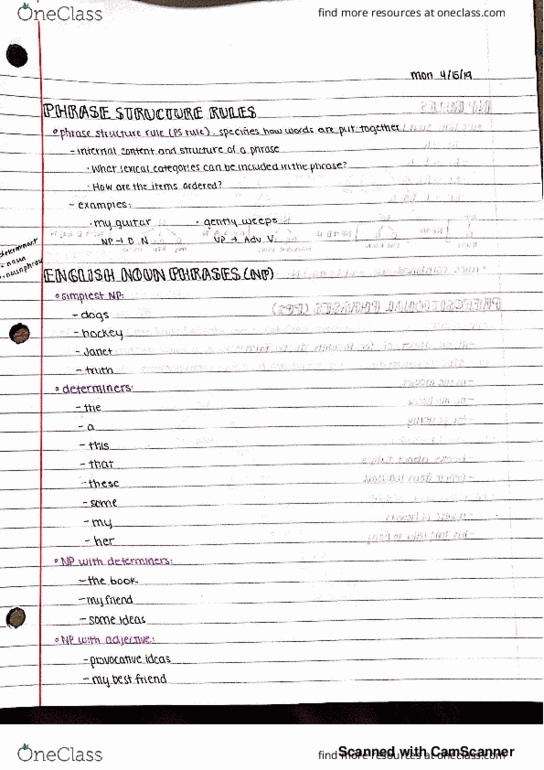 OneClass
find more resources at oneclass.com
mon 4/15/19
PHRASE STRUCTURE RULES
phrase structure rule (PS rule): specifies how words are put together
- internal content and structure of a phrase
· What lexical categories can be included in the phrase?
· How are the items ordered?
- examples:
· my guitar · gently weeps
NP → D N VP → Adv V
ENGLISH NOUN PHRASES (NP)
simplest NP:
- dogs
- hockey
- Janet
- truth
determiners:
- the
- a
- this
- that
- these
- some
- my
- her
NP with determiners:
- the book
- my friend
- some ideas
NP with adjective:
- provocative ideas
- my best friend
OneClass
find more resources at oneclass.com
Scanned with CamScanner